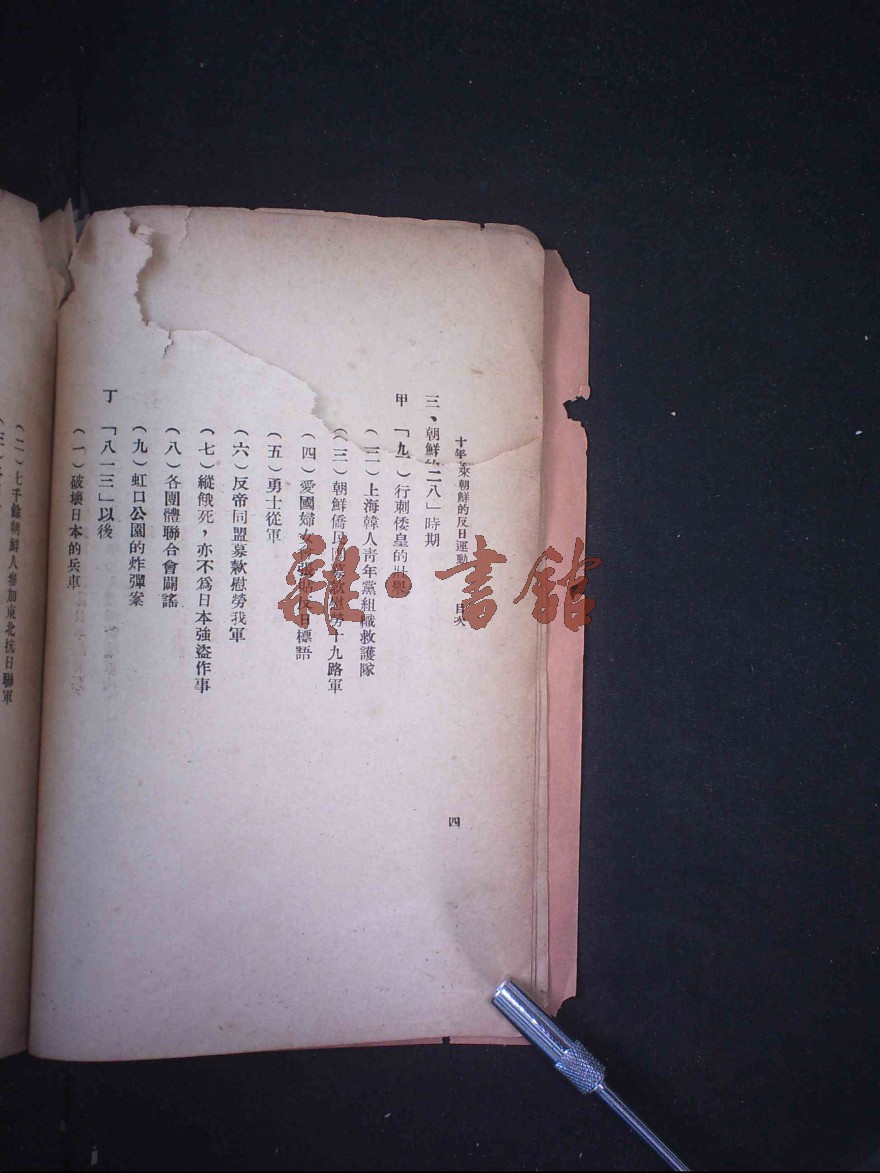 十年來朝鮮的反日運動 目次 四
三、朝鮮 二八」時期
甲 「九 一）行刺倭皇的壯舉
（二）上海韓人青年黨組織救護隊
（三）朝鮮僑民團募款慰勞十九路軍
（四）愛國婦女 張貼反日標語
（五）勇士從軍
（六）反帝同盟募款慰勞我軍
（七）縱餓死，亦不為日本強盜作事
（八）各團體聯合會闢謠
（九）虹口公園的炸彈案
丁 「八一三」以後
（一）破壞日本的兵車
（二）七千餘朝鮮人參加東北抗日聯軍
雜·書館